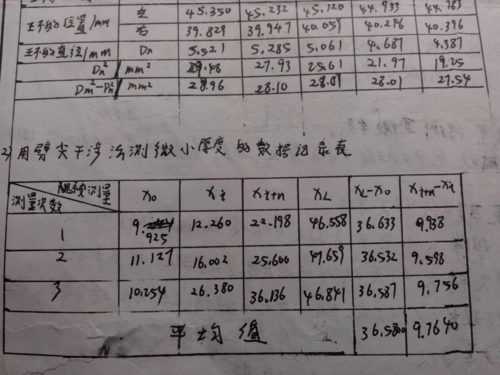 左 45.350 45.232 45.120 44.933 44.783
右 39.829 39.947 40.059 40.246 40.396
Dn 5.521 5.285 5.061 4.687 4.387
Dn²/mm² 27.93 25.61 21.97 19.25
Dm²-Dn²/mm² 28.96 28.10 28.01 28.01 27.54
2)用劈尖干涉法测微小厚度的数据记录表
测量次数 x₀ xᵢ xᵢ₊ₙ x_L x_L-x₀ xᵢ₊ₙ-xᵢ
1 9.925 12.260 22.198 46.558 36.633 9.938
2 11.127 16.002 25.600 47.659 36.532 9.598
3 10.254 26.380 36.136 46.841 36.587 9.756
平均值 9.7640